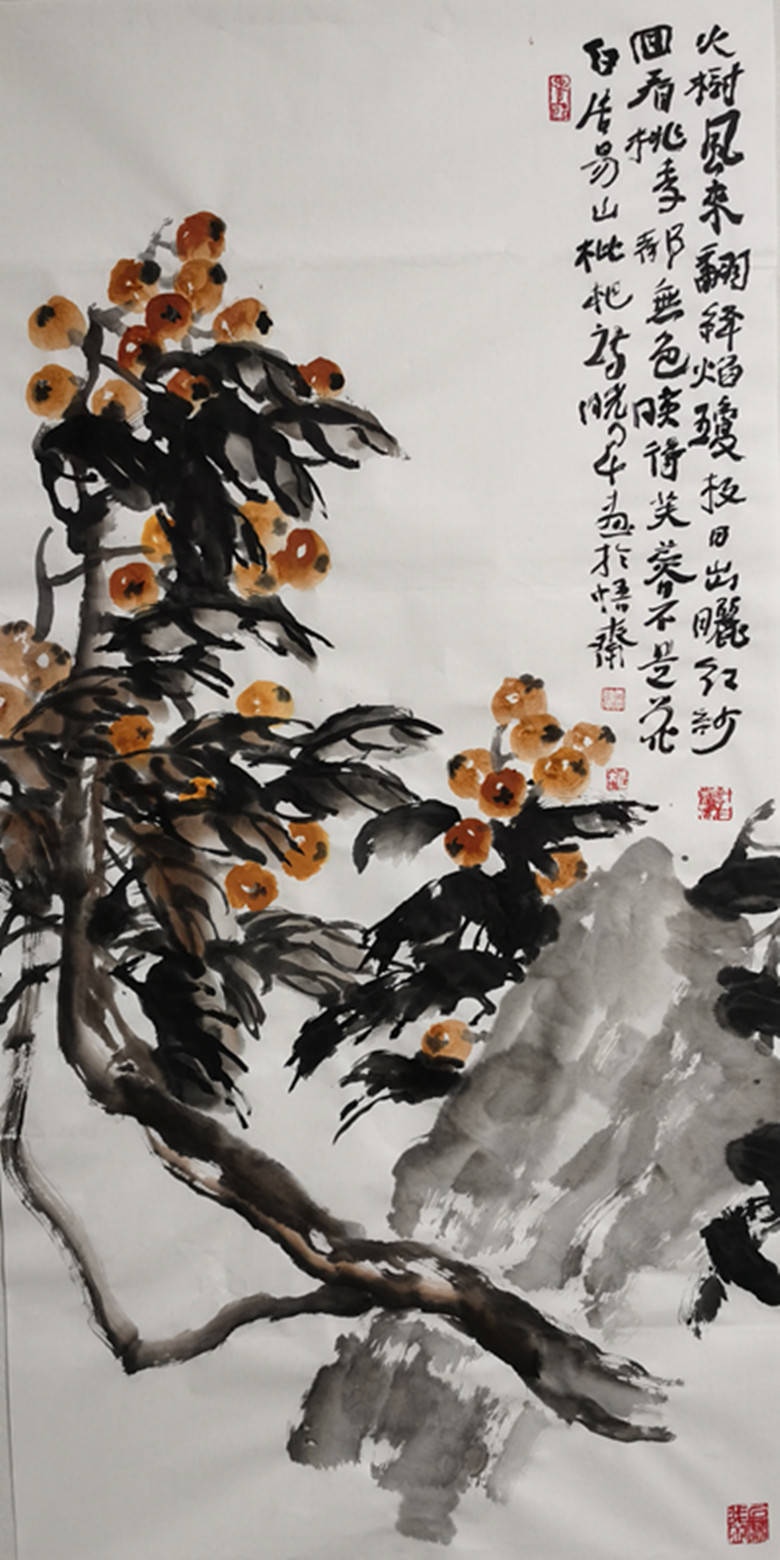 火樹風來翻絳焰瓊枝日出曬紅紗
回看桃李都無色映得芙蓉不是花
白居易山枇杷詩曉牛畫於悟齋